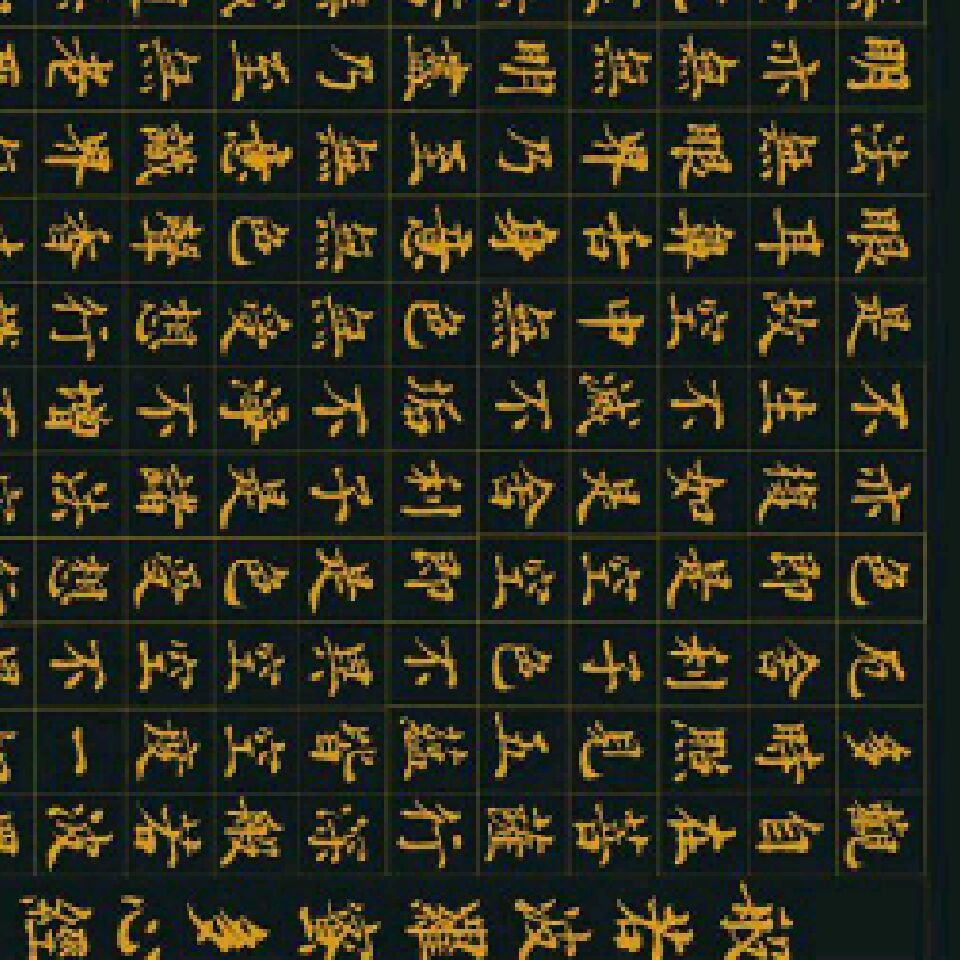 般若波羅蜜多心經
觀自在菩薩行深般若波
多時照見五蘊皆空度一
厄舍利子色不異空空不
色即是空空即是色受想
亦復如是舍利子是諸法
不生不滅不垢不淨不增
是故空中無色無受想行
眼耳鼻舌身意無色聲香
法無眼界乃至無意識界
明亦無無明盡乃至無老